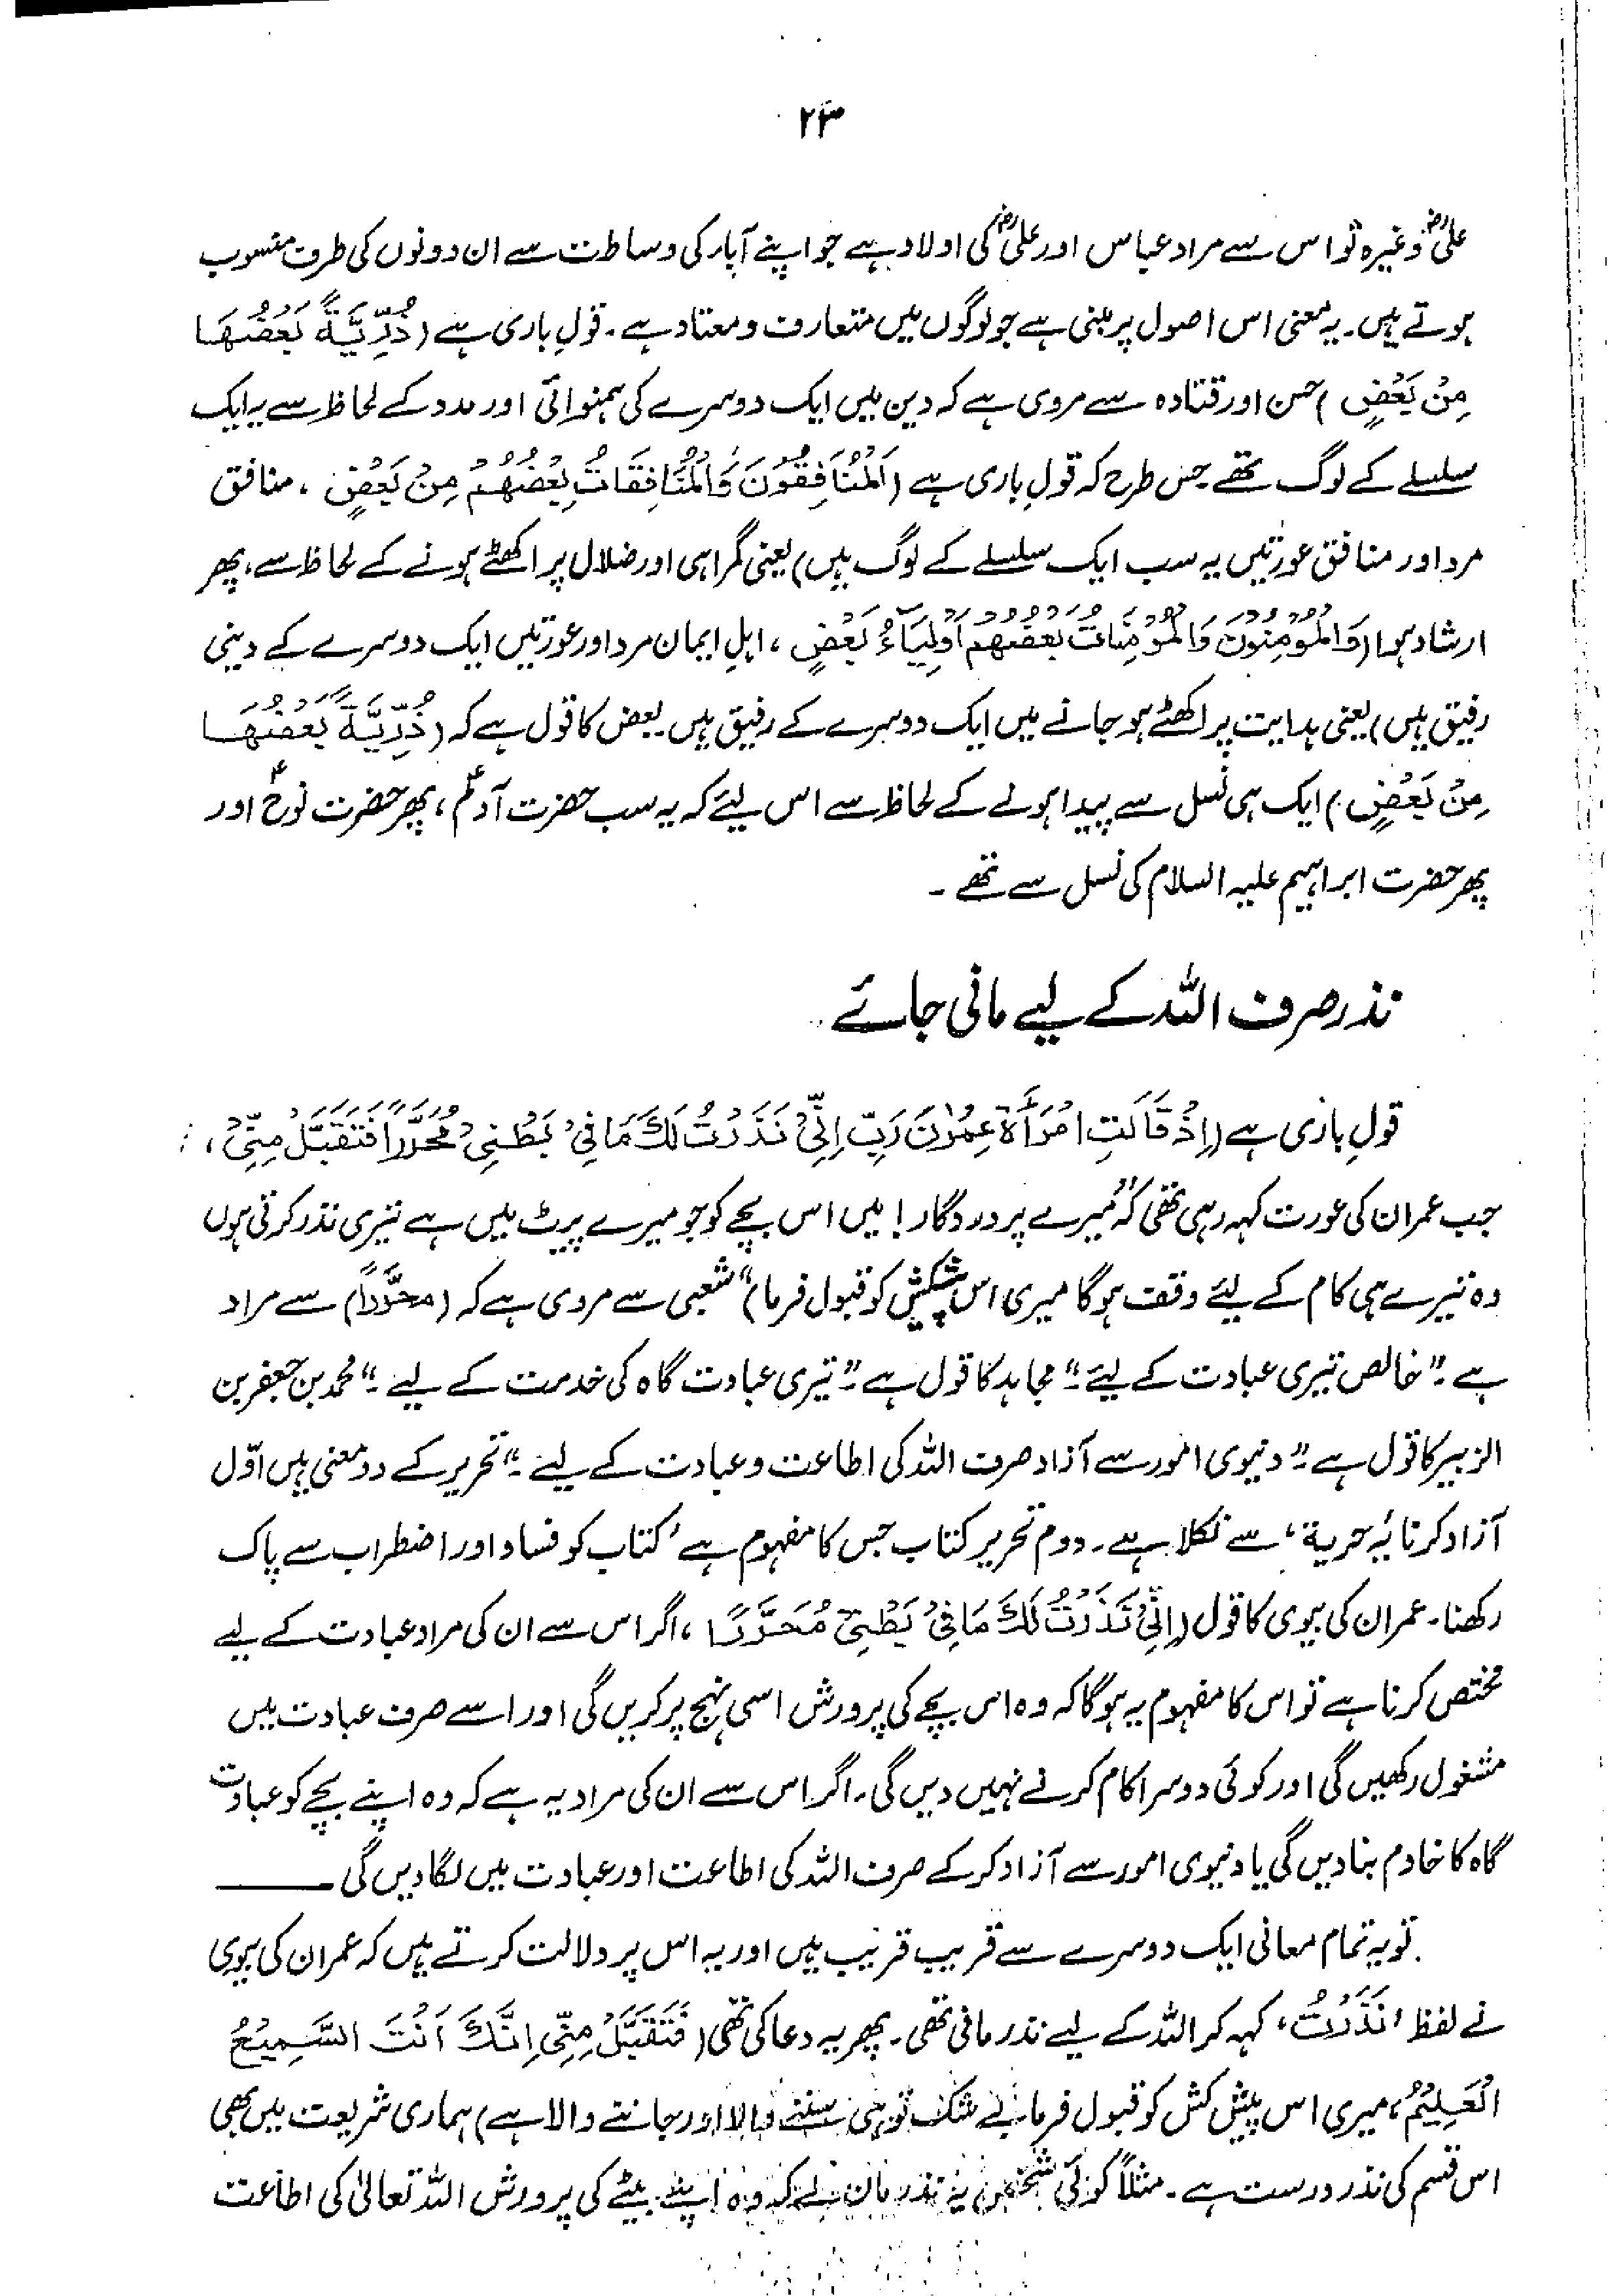 ۲۳
علیؓ وغیرہ تو اس سے مراد عباس اور علیؓ کی اولاد ہے جو اپنے آبار کی وساطت سے ان دونوں کی طرف منسوب
ہوتے ہیں۔ یہ معنی اس اصول پر مبنی ہے جو لوگوں میں متعارف و معتاد ہے۔ قولِ باری ہے (ذُرِّيَّةً بَعْضُهَا
مِنْ بَعْضٍ) حسن اور قتادہ سے مروی ہے کہ دین میں ایک دوسرے کی ہمنوائی اور مدد کے لحاظ سے یہ ایک
سلسلے کے لوگ تھے جس طرح کہ قولِ باری ہے (اَلْمُنَافِقُوْنَ وَالْمُنَافِقَاتُ بَعْضُهُمْ مِنْ بَعْضٍ، منافق
مرد اور منافق عورتیں یہ سب ایک سلسلے کے لوگ ہیں) یعنی گمراہی اور ضلال پر اکھٹے ہونے کے لحاظ سے، پھر
ارشاد ہوا (وَالْمُؤْمِنُوْنَ وَالْمُؤْمِنَاتُ بَعْضُهُمْ اَوْلِيَآءُ بَعْضٍ، اہلِ ایمان مرد اور عورتیں ایک دوسرے کے دینی
رفیق ہیں) یعنی ہدایت پر اکھٹے ہو جانے میں ایک دوسرے کے رفیق ہیں۔ بعض کا قول ہے کہ (ذُرِّيَّةً بَعْضُهَا
مِنْ بَعْضٍ) ایک ہی نسل سے پیدا ہونے کے لحاظ سے اس لیئے کہ یہ سب حضرت آدمؑ، پھر حضرت نوحؑ اور
پھر حضرت ابراہیم علیہ السلام کی نسل سے تھے۔
نذر صرف اللہ کے لیے مانی جائے
قولِ باری ہے (اِذْ قَالَتِ امْرَأَةُ عِمْرٰنَ رَبِّ اِنِّيْ نَذَرْتُ لَكَ مَا فِيْ بَطْنِيْ مُحَرَّرًا فَتَقَبَّلْ مِنِّيْ،
جب عمران کی عورت کہہ رہی تھی کہ "میرے پروردگار! میں اس بچے کو جو میرے پیٹ میں ہے تیری نذر کرتی ہوں
وہ تیرے ہی کام کے لیئے وقف ہوگا میری اس پیشکش کو قبول فرما)" شعبی سے مروی ہے کہ (محرَّرًا) سے مراد
ہے۔ "خالص تیری عبادت کے لیئے۔" مجاہد کا قول ہے۔ "تیری عبادت گاہ کی خدمت کے لیے۔" محمد بن جعفر بن
الزبیر کا قول ہے۔ "دنیوی امور سے آزاد صرف اللہ کی اطاعت و عبادت کے لیے۔" تحریر کے دو معنی ہیں اوّل
آزاد کرنا یہ حریۃ، سے نکلا ہے۔ دوم تحریر کتاب جس کا مفہوم ہے 'کتاب کو فساد اور اضطراب سے پاک
رکھنا۔ عمران کی بیوی کا قول (اِنِّيْ نَذَرْتُ لَكَ مَا فِيْ بَطْنِيْ مُحَرَّرًا، اگر اس سے ان کی مراد عبادت کے لیے
مختص کرنا ہے تو اس کا مفہوم یہ ہوگا کہ وہ اس بچے کی پرورش اسی نہج پر کریں گی اور اسے صرف عبادت میں
مشغول رکھیں گی اور کوئی دوسرا کام کرنے نہیں دیں گی۔ اگر اس سے ان کی مراد یہ ہے کہ وہ اپنے بچے کو عبادت
گاہ کا خادم بنا دیں گی یا دنیوی امور سے آزاد کر کے صرف اللہ کی اطاعت اور عبادت میں لگا دیں گی ——
تو یہ تمام معانی ایک دوسرے سے قریب قریب ہیں اور یہ اس پر دلالت کرتے ہیں کہ عمران کی بیوی
نے لفظ 'نَذَرْتُ' کہہ کر اللہ کے لیے نذر مانی تھی۔ پھر یہ دعا کی تھی (فَتَقَبَّلْ مِنِّيْ اِنَّكَ اَنْتَ السَّمِيْعُ
الْعَلِيْمُ، میری اس پیش کش کو قبول فرما بے شک تو ہی سننے والا اور جاننے والا ہے) ہماری شریعت میں بھی
اس قسم کی نذر درست ہے۔ مثلاً کوئی شخص یہ نذر مان لے کہ وہ اپنے بیٹے کی پرورش اللہ تعالیٰ کی اطاعت